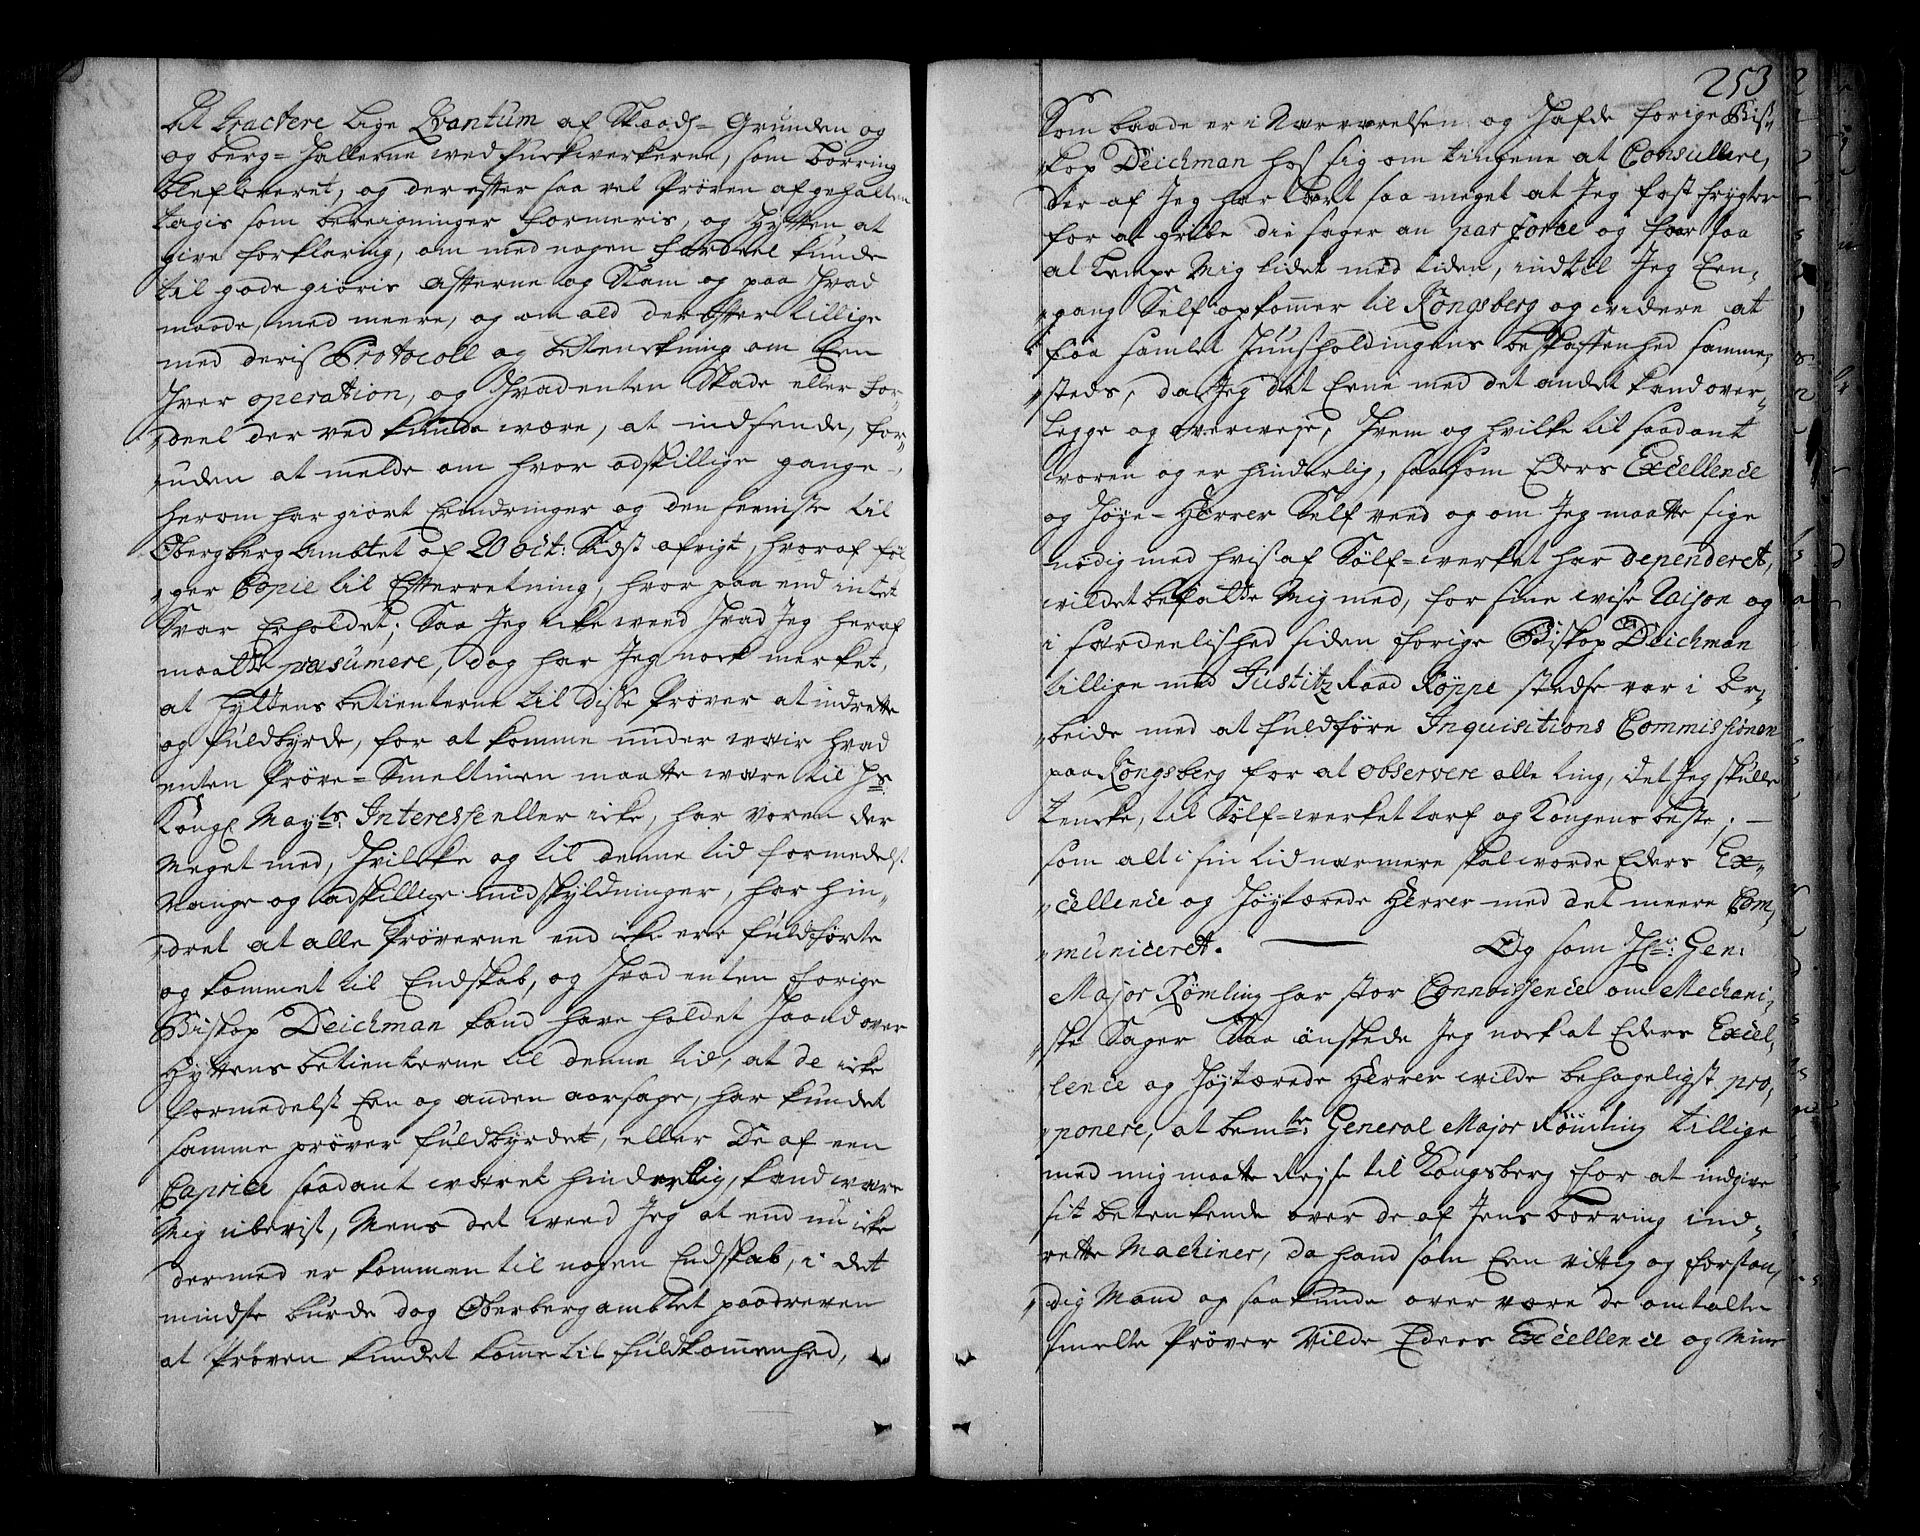 at tractere lige Qvantum af Skeds- Grunden og
og berg-Hallerne ved Puckverkerne, som Borring
blef leveret, og derefter saa vel Prøven af gehalten
tagis som beregninger formeris, og Hytten at
give forklaring, om med nogen fordeel kunde
til gode giøris afterne og Slam og paa Hvad
maade, med meere, og om ald derefter tillige
med deris Protocoll og betenckning om Een
Hver operation, og Hvadenten Skade eller For-
deel der ved kunde være, at indsende, for-
uden at melde om hvor adskillige gange
herom har giort Erindringer og den seeniste til
Obergberg Ambtet af 20 oct: Sidst afvigt, hvoraf føl
ger Copie til Efterretning, hvor paa end intet
Svar Erholdet; Saa Jeg icke veed Hvad Jeg heraf
maatte præsumere, dog har Jeg nock mercket,
at Hyttens betienterne til disse Prøver at indrette
og fuldbyrde, for at komme under vair hvad
enten Prøve-Smeltinen maatte være til Hs
Kongl. Mayts. Interesse eller icke, har voren der
Meget med, Hvilcke og til denne tid formedelst
Mange og adskillige undskyldninger, har hin-
dret at alle Prøverne end icke ere fuldførte
og kommet til Endskab, og Hvad enten forige
Biskop Deichman kand have holdet Haand over
Hyttens betienterne til denne tid, at de icke
formedelst Een og anden aarsage, har kundet
samme prøver fuldbyrdet, eller De af een
Caprice saadant været hinderlig, kand være
Mig ubevist, Mens det veed Jeg at end nu icke
dermed er kommen til nogen Endskab, i det
mindste burde dog Oberbergambtet paadreven
at Prøven kundet komme til fuldkommenhed,
253
Som baade er i Nærværelsen og Hafde forige Bis-
kop Deichman hos sig om tingene at Consulere,
der af Jeg har lært saa meget at Jeg fast frygter
for at gribe die sager an par force og faar saa
at lempe Mig lidet med tiden, indtil Jeg Een-
gang Self opkommer til Kongsberg og videre at
faa samlet Huusholdingens beskaffenhed samme-
steds, da Jeg det Eene med det andet kand over-
legge og overveje, Hvem og hvilke til saadant
voren og er hinderlig, saasom Eders Excellence
og Høye-Herrer Self veed og om Jeg maatte sige
nødig med hvis af Sølf-verket har dependeret,
vildet befatte Mig med, for sine visse Raison og
i særdeelished siden forige Biskop Deichman
tillige med Justitz Raad Røppe stedse var i Ar-
beide med at fuldføre Inquisitions Commissionen
paa Kongsberg for at observere alle ting, det Jeg skulle
tencke, til Sølf-verket tarf og Kongens beste; —
som alt i sin tid nærmere skal worde Eders Ex-
cellence og Høytærede Herrer med det meere Com-
municeret. — Og som Hr: Gen:
Major Rømling har stor Connoissence om Mechani-
ske Sager Saa ønskede Jeg nock at Eders Excel-
lence og Høytærede Herrer vilde behageligst pro-
ponere, at bemte: General Major Rømling tillige
med mig maatte Rejse til Kongsberg for at indgive
sit betenkende over de af Jens borring ind-
rette Machiner, da hand som Een vittig og forstan-
dig Mand og saa kunde over være de omtalte
smelte Prøver Vilde Eders Excellence og Mine